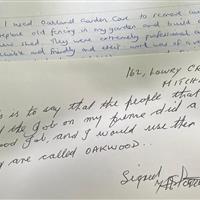 I used Oakland Garden Care to remove
replace old fencing in my garden and build a
new shed. They were extremely professional
and friendly and their work was of a
162, LOWRY CR
MITCH
is is to say that the people that
the Job on my fence did a
ood Job, and I would use them
y are called OAKWOOD..
Signed